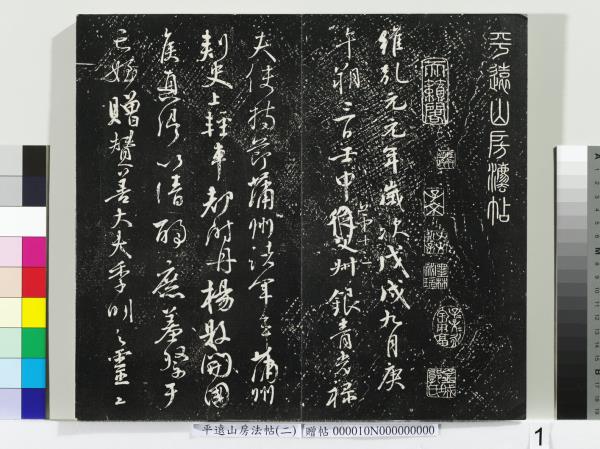 平遠山房法帖
維乾元元年歲次戊戌九月庚
午朔三日壬申第十三叔銀青光祿
夫使持節蒲州諸軍事蒲州
刺史上輕車都尉丹楊縣開國
侯真卿以清酌庶羞祭于
亡姪贈贊善大夫季明之靈曰
平遠山房法帖(二) 贈帖 000010N000000000
1